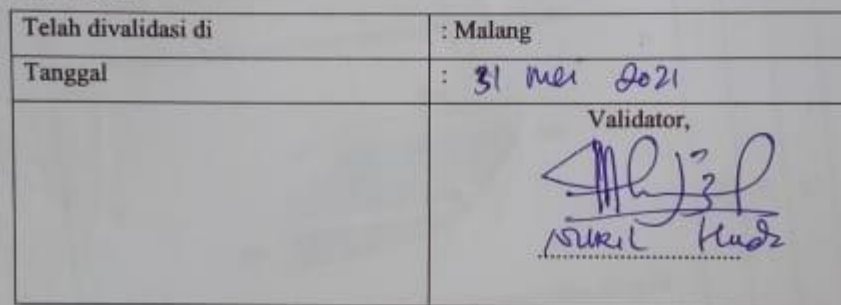 Telah divalidasi di : Malang
Tanggal : 31 Mei 2021
Validator,
Nuril Huda